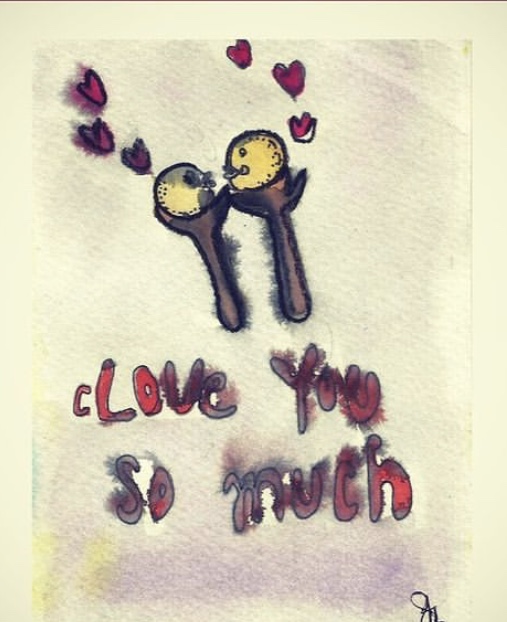 cLOVe You
So much